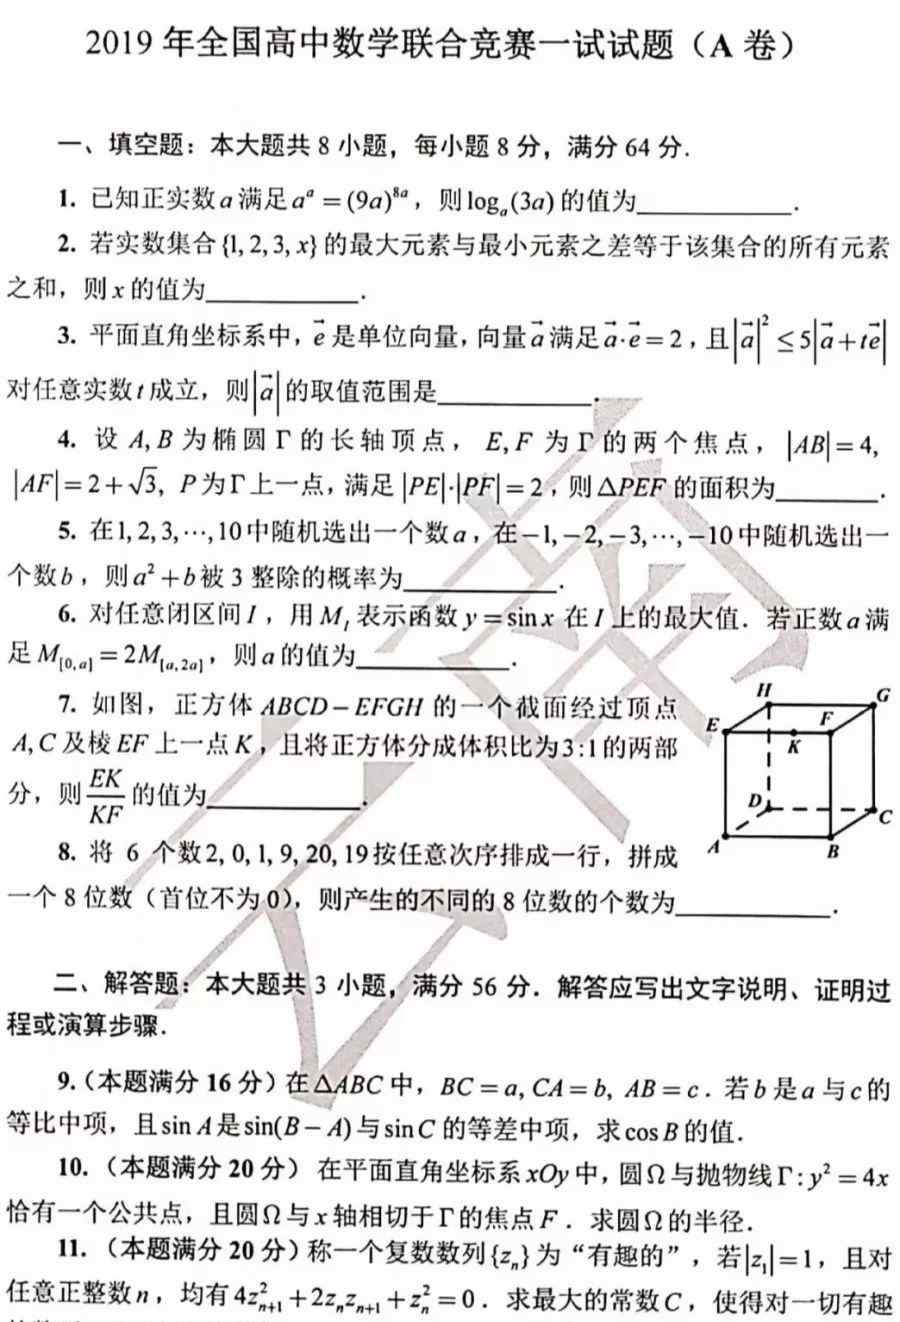 2019 年全国高中数学联合竞赛一试试题（A 卷）
一、填空题：本大题共 8 小题，每小题 8 分，满分 64 分.
1. 已知正实数 a 满足 a^a = (9a)^{8a}，则 log_a(3a) 的值为____________.
2. 若实数集合 {1, 2, 3, x} 的最大元素与最小元素之差等于该集合的所有元素
之和，则 x 的值为____________.
3. 平面直角坐标系中，\vec{e} 是单位向量，向量 \vec{a} 满足 \vec{a}·\vec{e} = 2，且 |\vec{a}|² ≤ 5|\vec{a}+t\vec{e}|
对任意实数 t 成立，则 |\vec{a}| 的取值范围是____________.
4. 设 A, B 为椭圆 Γ 的长轴顶点，E, F 为 Γ 的两个焦点，|AB| = 4,
|AF| = 2+√3, P 为 Γ 上一点，满足 |PE|·|PF| = 2，则 △PEF 的面积为________.
5. 在 1, 2, 3, ⋯, 10 中随机选出一个数 a，在 −1, −2, −3, ⋯, −10 中随机选出一
个数 b，则 a² + b 被 3 整除的概率为____________.
6. 对任意闭区间 I，用 M_I 表示函数 y = sin x 在 I 上的最大值．若正数 a 满
足 M_{[0,a]} = 2M_{[a,2a]}，则 a 的值为____________.
7. 如图，正方体 ABCD − EFGH 的一个截面经过顶点
A, C 及棱 EF 上一点 K，且将正方体分成体积比为 3:1 的两部
分，则 EK/KF 的值为____________.
H
G
E
F
K
D
C
A
B
8. 将 6 个数 2, 0, 1, 9, 20, 19 按任意次序排成一行，拼成
一个 8 位数（首位不为 0），则产生的不同的 8 位数的个数为____________.
二、解答题：本大题共 3 小题，满分 56 分．解答应写出文字说明、证明过
程或演算步骤．
9.（本题满分 16 分）在 △ABC 中，BC = a, CA = b, AB = c．若 b 是 a 与 c 的
等比中项，且 sin A 是 sin(B − A) 与 sin C 的等差中项，求 cos B 的值．
10.（本题满分 20 分）在平面直角坐标系 xOy 中，圆 Ω 与抛物线 Γ: y² = 4x
恰有一个公共点，且圆 Ω 与 x 轴相切于 Γ 的焦点 F．求圆 Ω 的半径．
11.（本题满分 20 分）称一个复数数列 {z_n} 为“有趣的”，若 |z_1| = 1，且对
任意正整数 n，均有 4z_{n+1}² + 2z_n z_{n+1} + z_n² = 0．求最大的常数 C，使得对一切有趣